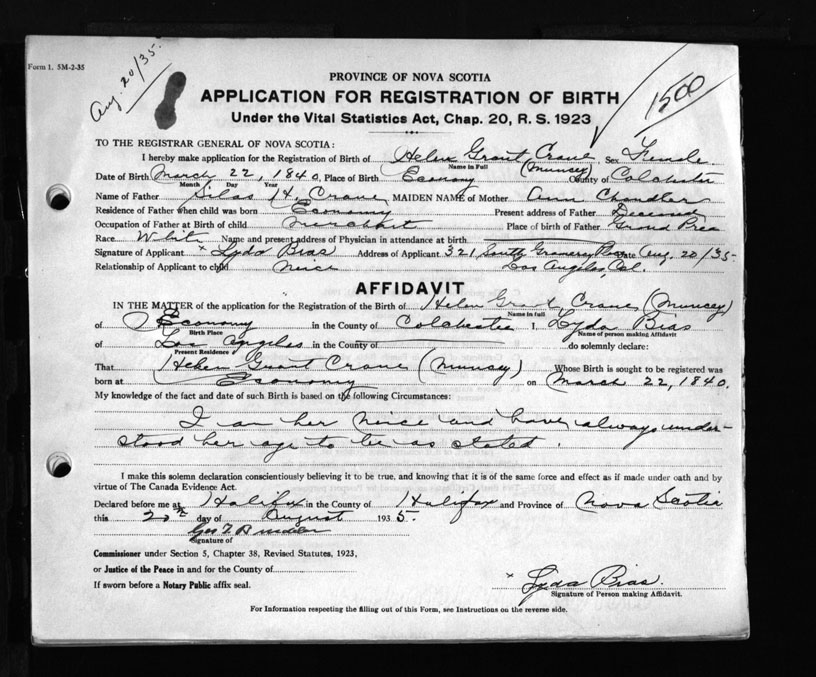 Form 1. 5M-2-35
Aug. 20/35.
1500
PROVINCE OF NOVA SCOTIA
APPLICATION FOR REGISTRATION OF BIRTH
Under the Vital Statistics Act, Chap. 20, R. S. 1923
TO THE REGISTRAR GENERAL OF NOVA SCOTIA:
I hereby make application for the Registration of Birth of Helen Grant Crane Sex Female
Name in Full (Muncey)
Date of Birth March 22, 1840. Place of Birth Economy County of Colchester
Month Day Year
Name of Father Silas H. Crane MAIDEN NAME of Mother Ann Chandler
Residence of Father when child was born Economy Present address of Father Deceased
Occupation of Father at Birth of child Merchant Place of birth of Father Grand Pree
Race White Name and present address of Physician in attendance at birth
Signature of Applicant x Lyda Bias Address of Applicant 321 South Gramercy Place Date Aug. 20/35-
Relationship of Applicant to child Neice Los Angeles Cal.
AFFIDAVIT
IN THE MATTER of the application for the Registration of the Birth of Helen Grant Crane (Muncey)
Name in full
of Economy in the County of Colchester I, Lyda Bias
Birth Place Name of person making Affidavit
of Los Angeles in the County of do solemnly declare:
Present Residence
That Helen Grant Crane (Muncey) Whose Birth is sought to be registered was
born at Economy on March 22, 1840.
My knowledge of the fact and date of such Birth is based on the following Circumstances:
I am her Neice and have always under-
stood her age to be as stated.
I make this solemn declaration conscientiously believing it to be true, and knowing that it is of the same force and effect as if made under oath and by
virtue of The Canada Evidence Act.
Declared before me at Halifax in the County of Halifax and Province of Nova Scotia
this 20th day of August 1935.
Signature of
Commissioner under Section 5, Chapter 38, Revised Statutes, 1923,
or Justice of the Peace in and for the County of
If sworn before a Notary Public affix seal.
x Lyda Bias.
Signature of Person making Affidavit.
For Information respecting the filling out of this Form, see Instructions on the reverse side.